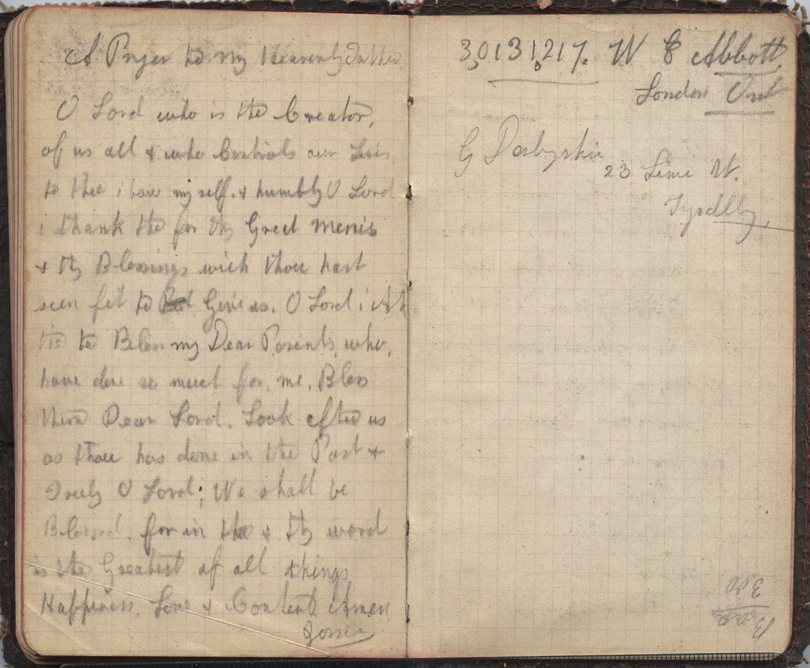 A Prayer to my Heavenly Father
O Lord who is the Creator,
of us all & who Controls our lives
to thee i bow my self. & humbly O Lord
i thank the for thy Greet
& thy Blessings wich thou hast
seen fit to Give us. O Lord i
the to Bless my Dear Parents, who,
have done so much for, me, Bless
them Dear Lord. Look after us
as thou has done in the Past &
O Lord; We shall be
Blessed. for in the & thy word
is the Greatest of all things
Happiness, Love & Content Amen
30131217. W E Abbott.
London Ont
G Derbyshire
23 Lime St.
Tyldsley.